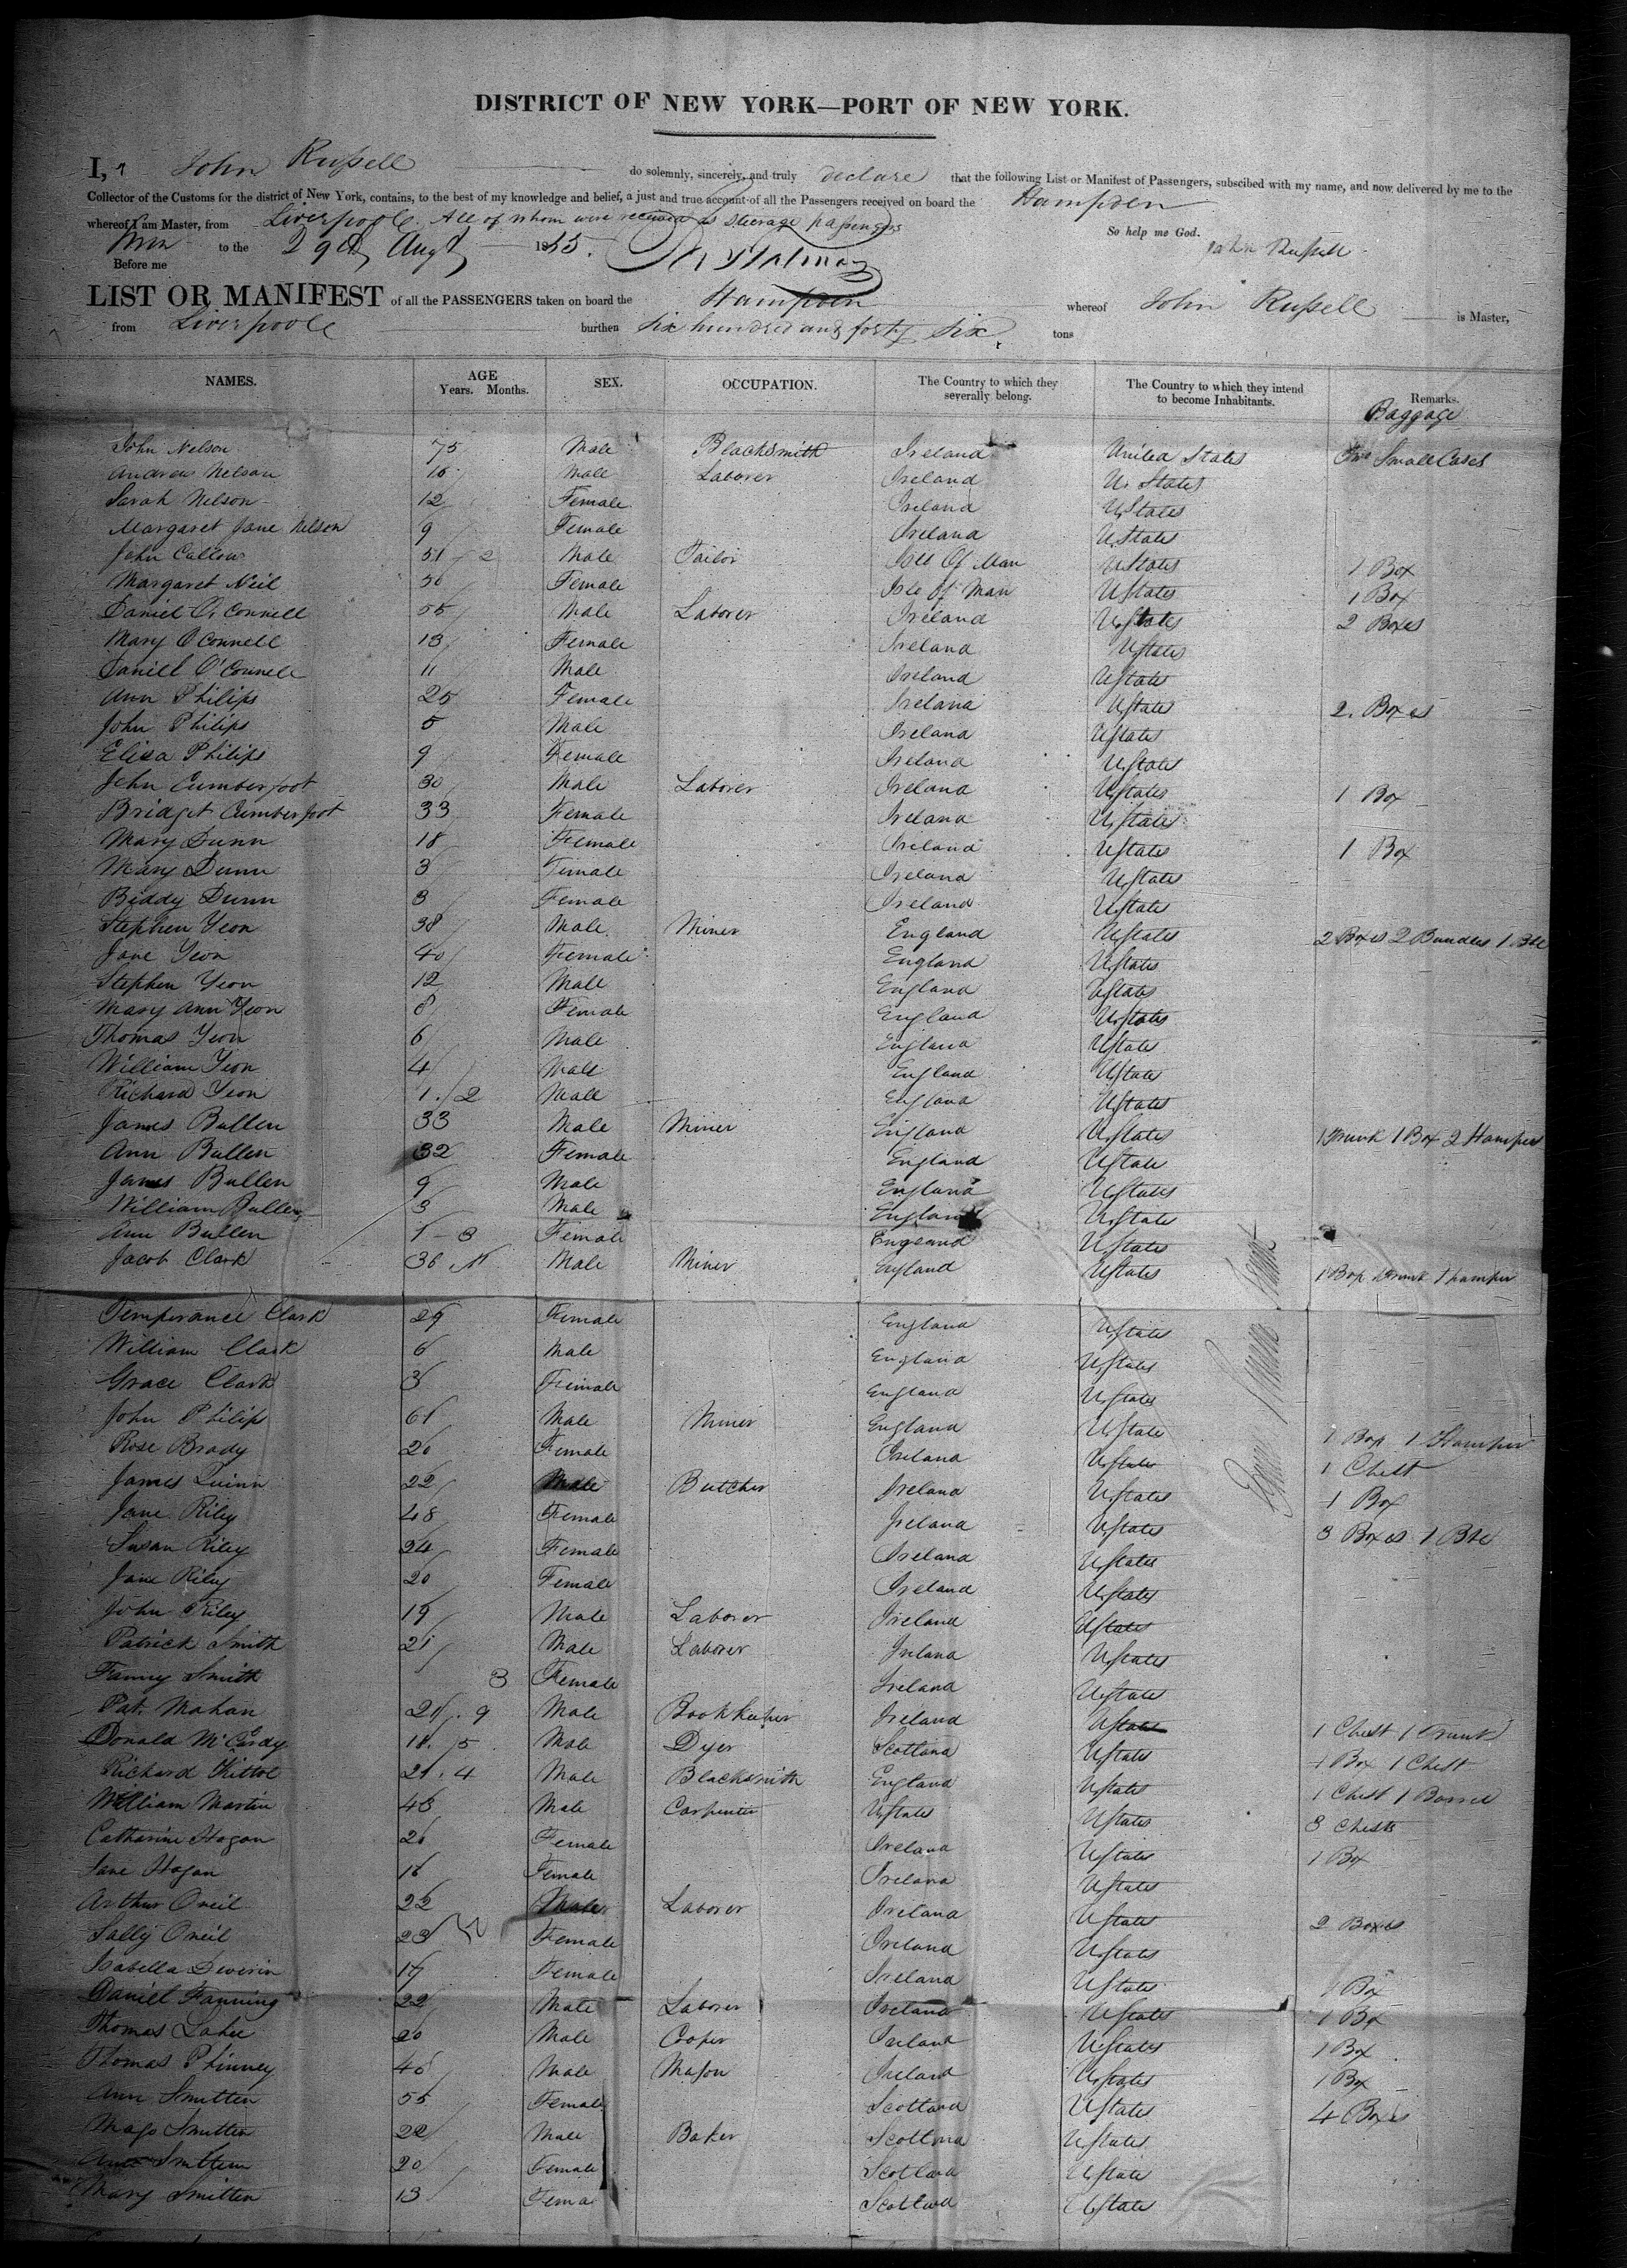 DISTRICT OF NEW YORK—PORT OF NEW YORK.
I, John Russell do solemnly, sincerely, and truly declare that the following List or Manifest of Passengers, subscibed with my name, and now delivered by me to the
Collector of the Customs for the district of New York, contains, to the best of my knowledge and belief, a just and true account of all the Passengers received on board the Hampden
whereof I am Master, from Liverpoole. All of whom were received as Steerage passengers
So help me God.
to the 29th Augt 1845. John Russell
Before me
LIST OR MANIFEST of all the PASSENGERS taken on board the Hampden whereof John Russell is Master,
from Liverpoole burthen six hundred and forty six tons
NAMES. AGE Years. Months. SEX. OCCUPATION. The Country to which they severally belong. The Country to which they intend to become Inhabitants. Remarks. Baggage
John Nelson 75 Male Blacksmith Ireland United States Two Small Cases
Andrew Nelson 16 Male Laborer Ireland U. States
Sarah Nelson 12 Female Ireland UStates
Margaret Jane Nelson 9 Female Ireland UStates
John Callow 51 2 Male Tailor Isle Of Man UStates 1 Box
Margaret Neil 50 Female Isle of Man UStates 1 Box
Daniel O'Connell 55 Male Laborer Ireland UStates 2 Boxes
Mary O'Connell 13 Female Ireland UStates
Daniell O'Connell 11 Male Ireland UStates
Ann Philips 25 Female Ireland UStates 2 Boxes
John Philips 5 Male Ireland UStates
Eliza Philips 9 Female Ireland UStates
John Cumberfoot 30 Male Laborer Ireland UStates 1 Box
Bridget Cumberfoot 33 Female Ireland UStates
Mary Dunn 18 Female Ireland UStates 1 Box
Mary Dunn 3 Female Ireland UStates
Biddy Dunn 3 Female Ireland UStates
Stephen Yeon 38 Male Miner England UStates 2 Boxes 2 Bundles 1 Bbl
Jane Yeon 40 Female England UStates
Stephen Yeon 12 Male England UStates
Mary Ann Yeon 8 Female England UStates
Thomas Yeon 6 Male England UStates
William Yeon 4 Male England UStates
Richard Yeon 1. 2 Male England UStates
James Bullen 33 Male Miner England UStates 1 Trunk 1 Box 2 Hampers
Ann Bullen 32 Female England UStates
James Bullen 9 Male England UStates
William Bullen 3 Male England UStates
Ann Bullen 1 - 3 Female England UStates
Jacob Clark 36 Male Miner England UStates 1 Box Trunk 1 hamper
Temperance Clark 29 Female England UStates
William Clark 6 Male England UStates
Grace Clark 3 Female England UStates
John Philip 61 Male Miner England UState 1 Box 1 Hamper
Rose Brady 20 Female Ireland UStates 1 Chest
James Quinn 22 Male Butcher Ireland UStates 1 Box
Jane Riley 48 Female Ireland UStates 3 Boxes 1 Bbl
Susan Riley 24 Female Ireland UStates
Jane Riley 20 Female Ireland UStates
John Riley 19 Male Laborer Ireland UStates
Patrick Smith 21 Male Laborer Ireland UStates
Fanny Smith 3 Female Ireland UStates
Pat. Mahan 21. 9 Male Bookkeeper Ireland UStates 1 Chest 1 Trunk
Donald McCurdy 18. 5 Male Dyer Scotland UStates 1 Box 1 Chest
Richard Kittoe 21. 4 Male Blacksmith England UStates 1 Chest 1 Barrel
William Martin 43 Male Carpenter UStates UStates 3 Chests
Catharine Hagan 20 Female Ireland UStates 1 Box
Jane Hagan 16 Female Ireland UStates
Arthur Oneil 22 Male Laborer Ireland UStates 2 Boxes
Sally Oneil 23 Female Ireland UStates
Isabella Deverin 17 Female Ireland UStates 1 Box
Daniel Fanning 22 Male Laborer Ireland UStates 1 Box
Thomas Lahee 20 Male Cooper Ireland UStates 1 Box
Thomas Phinney 40 Male Mason Ireland UStates 1 Box
Ann Smitten 55 Female Scotland UStates 4 Boxes
Smitten 22 Male Baker Scotland UStates
Ann Smitten 20 Female Scotland UState
Mary Smitten 13 Fema Scotland UStates